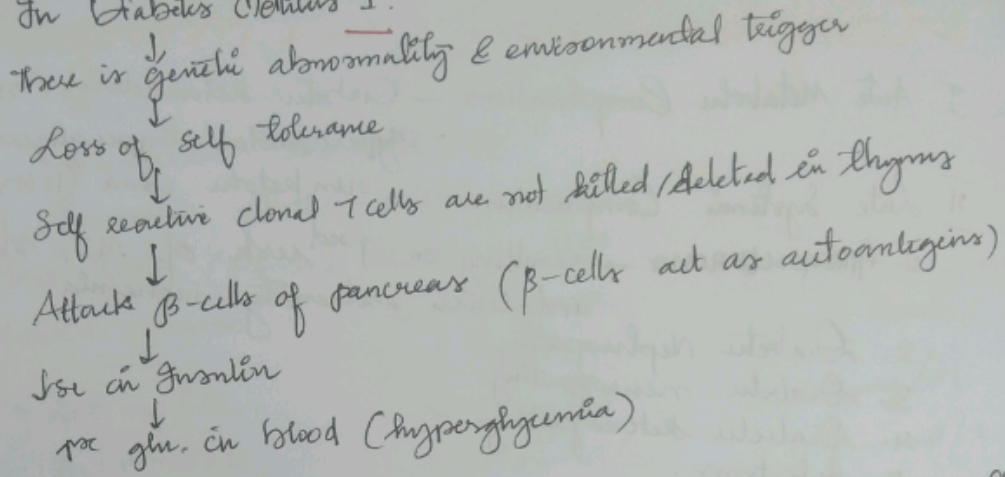 In Diabetes Mellitus I.
↓
There is genetic abnormality & environmental trigger
↓
Loss of self tolerance
↓
Self reactive clonal T cells are not killed/deleted in thymus
↓
Attack β-cells of pancreas (β-cells act as autoantigins)
↓
↓se in Insulin
↓
↑se glu. in blood (hyperglycemia)